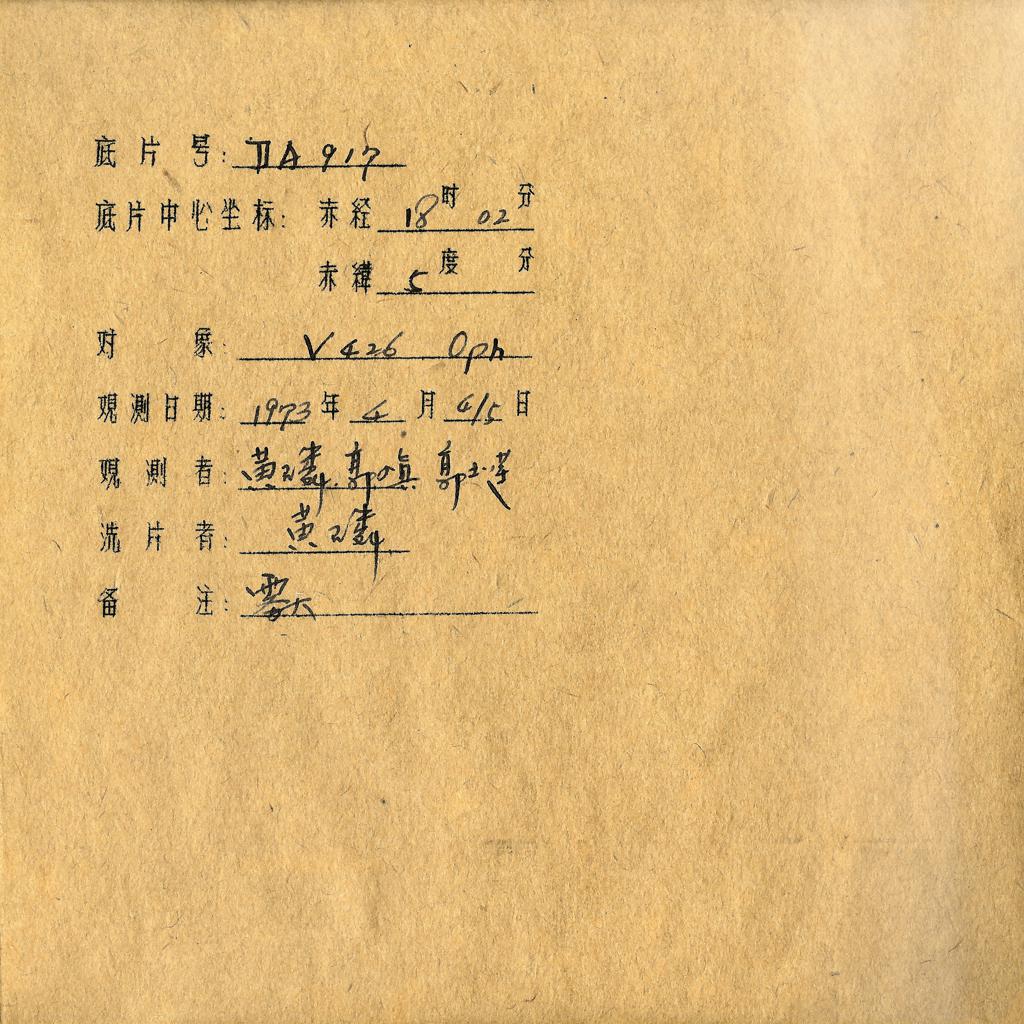 底片号: ⅡA 917
底片中心坐标: 赤经 18时 02分
赤緯 5度 分
对象: V 426 Oph
观测日期: 1973年 4月 4/5日
观测者: 黄 郭 郭
洗片者: 黄
备注: